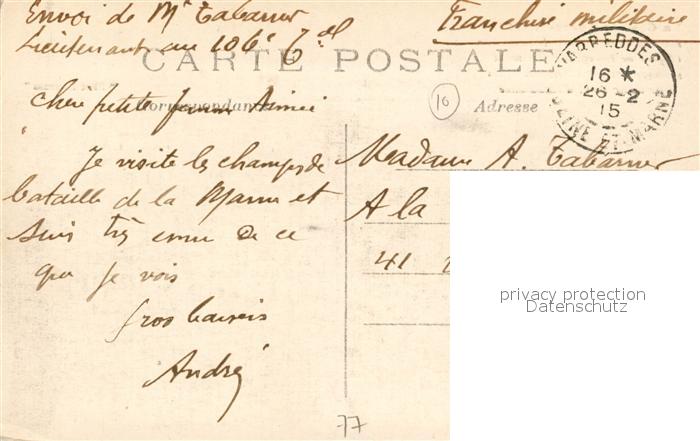 Envoi de Mr Tabarner
Lieutenant au 106e Tal
Franchise militaire
CARTE POSTALE
Correspondance
Adresse
10
VARREDDES
16 *
26 - 2
15
SEINE-ET-MARNE
chere petite Aimée
Je visite les champs de
bataille de la Marne et
suis très emu de ce
que je vois
gros baisers
André
Madame A. Tabarner
A la
41
77
privacy protection
Datenschutz